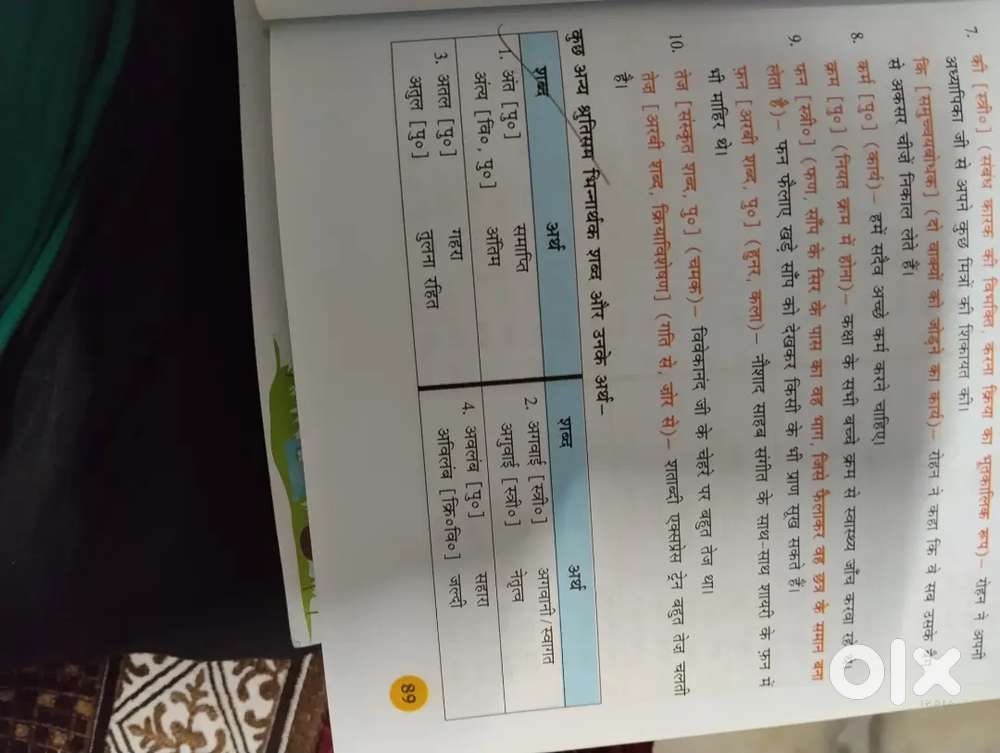 7. की [स्त्री०] (संबंध कारक की विभक्ति, करना क्रिया का भूतकालिक रूप)– रोहन ने अपनी
अध्यापिका जी से अपने कुछ मित्रों की शिकायत की।
कि [समुच्चयबोधक] (दो वाक्यों को जोड़ने का कार्य)– रोहन ने कहा कि वे सब उसके
से अकसर चीजें निकाल लेते हैं।
8. कर्म [पु०] (कार्य)– हमें सदैव अच्छे कर्म करने चाहिए।
क्रम [पु०] (नियत क्रम में होना)– कक्षा के सभी बच्चे क्रम से स्वास्थ्य जाँच करवा रहे
9. फन [स्त्री०] (फण, साँप के सिर के पास का वह भाग, जिसे फैलाकर वह छत्र के समान बना
लेता है)– फन फैलाए खड़े साँप को देखकर किसी के भी प्राण सूख सकते हैं।
फ़न [अरबी शब्द, पु०] (हुनर, कला)– नौशाद साहब संगीत के साथ-साथ शायरी के फ़न में
भी माहिर थे।
10. तेज [संस्कृत शब्द, पु०] (चमक)– विवेकानंद जी के चेहरे पर बहुत तेज था।
तेज़ [अरबी शब्द, क्रियाविशेषण] (गति से, जोर से)– शताब्दी एक्सप्रेस ट्रेन बहुत तेज चलती
है।
कुछ अन्य श्रुतिसम भिन्नार्थक शब्द और उनके अर्थ–
शब्द अर्थ शब्द अर्थ
1. अंत [पु०] समाप्ति 2. अगवाई [स्त्री०] अगवानी/स्वागत
अंत्य [वि०, पु०] अंतिम अगुवाई [स्त्री०] नेतृत्व
3. अतल [पु०] गहरा 4. अवलंब [पु०] सहारा
अतुल [पु०] तुलना रहित अविलंब [क्रि०वि०] जल्दी
89
olx